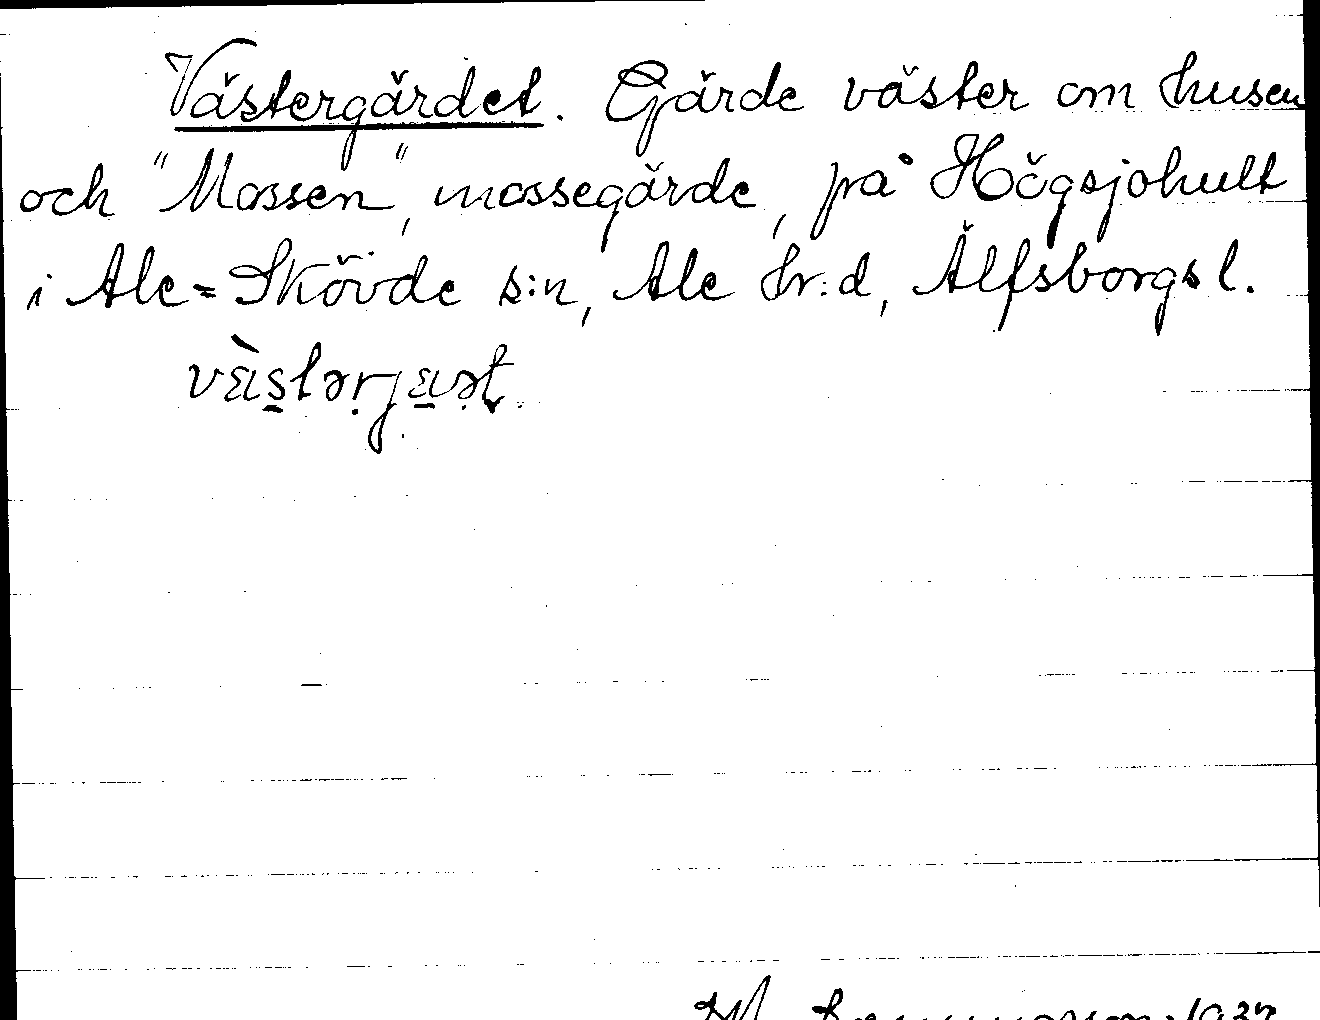 Västergärdet. Gärde väster om husen
och "Mossen", mossegärde, på Högsjohult
i Ale=Skövde s:n, Ale hr:d, Älfsborgs l.